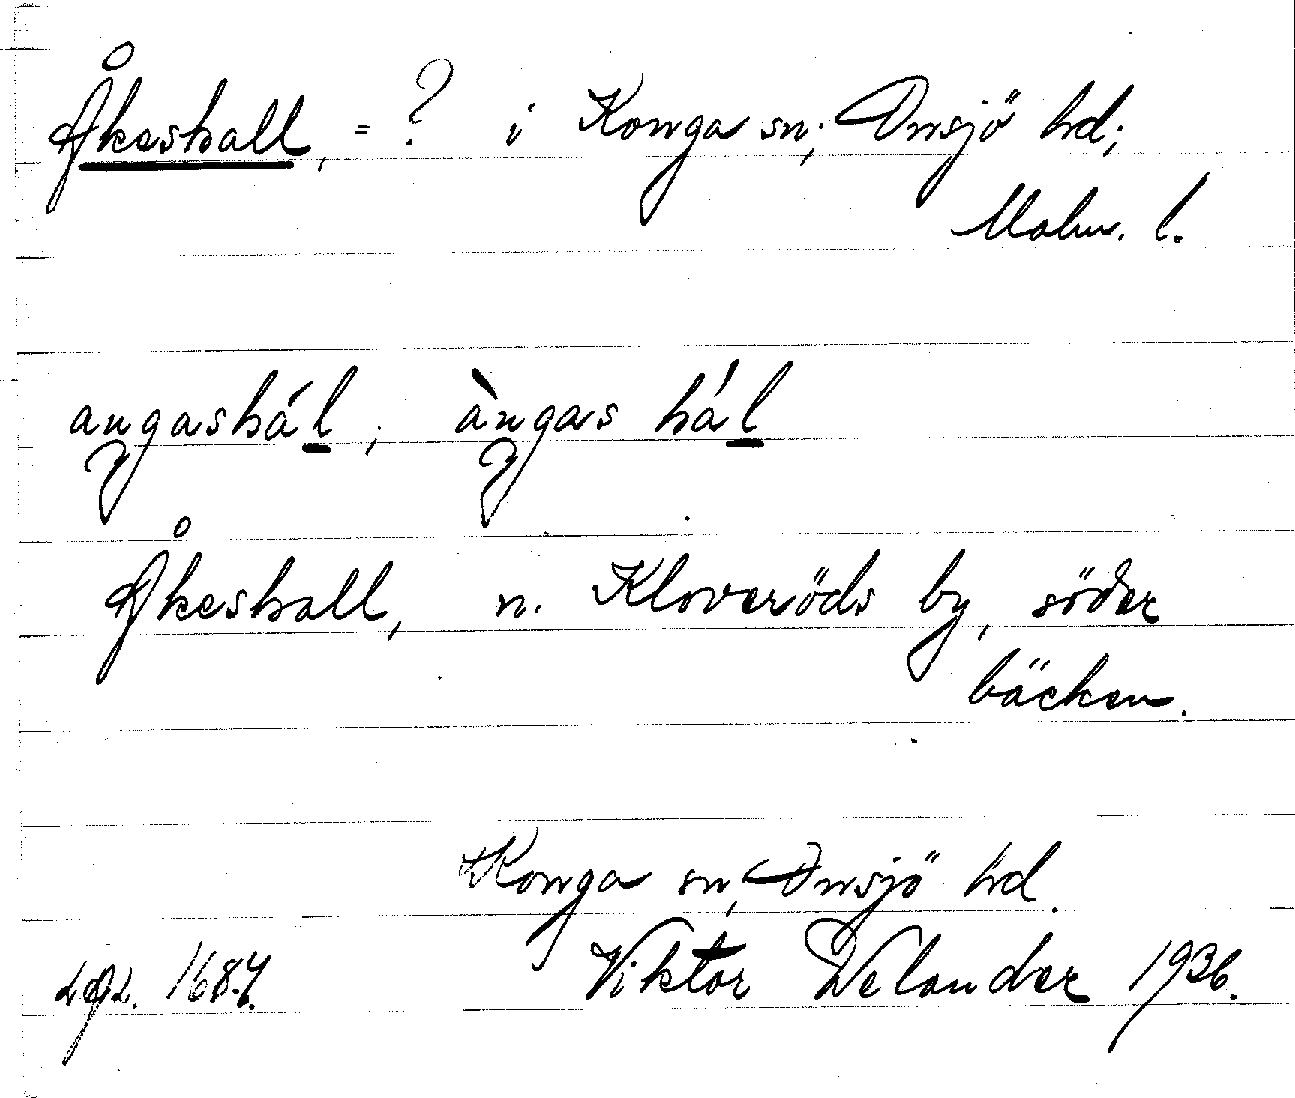 Åkeshall, = ? i Konga sn; Onsjö hd;
Malm. l.
angashál; àngas hál
Åkeshall, n. Kloveröds by, söder
bäcken.
Konga sn, Onsjö hd.
1684. Viktor Welander 1936.